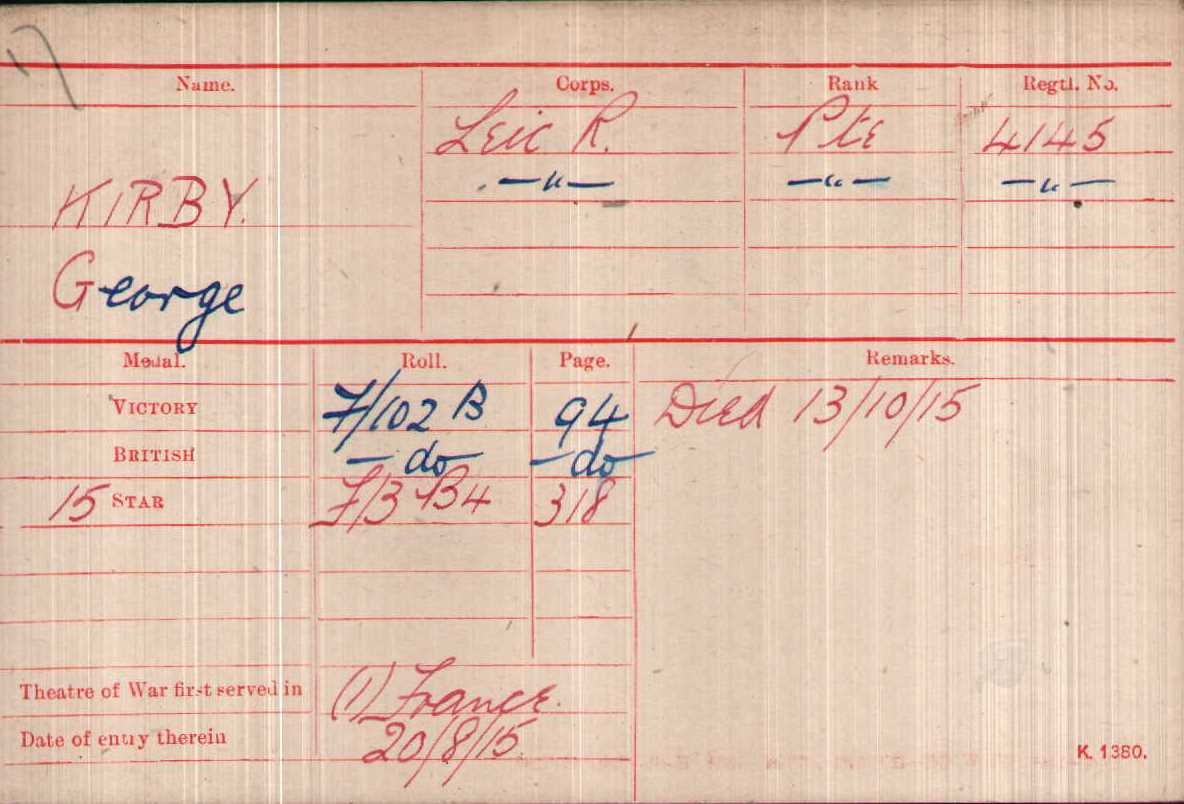 Name. Corps. Rank Regtl. No.
Leic R. Pte 4145
—"— —"— —"—
KIRBY.
George
Medal. Roll. Page. Remarks.
VICTORY F/102 B 94 Died 13/10/15
BRITISH — do — — do —
15 STAR F/3 B4 318
Theatre of War first served in (1) France.
Date of entry therein 20/8/15.
K. 1380.